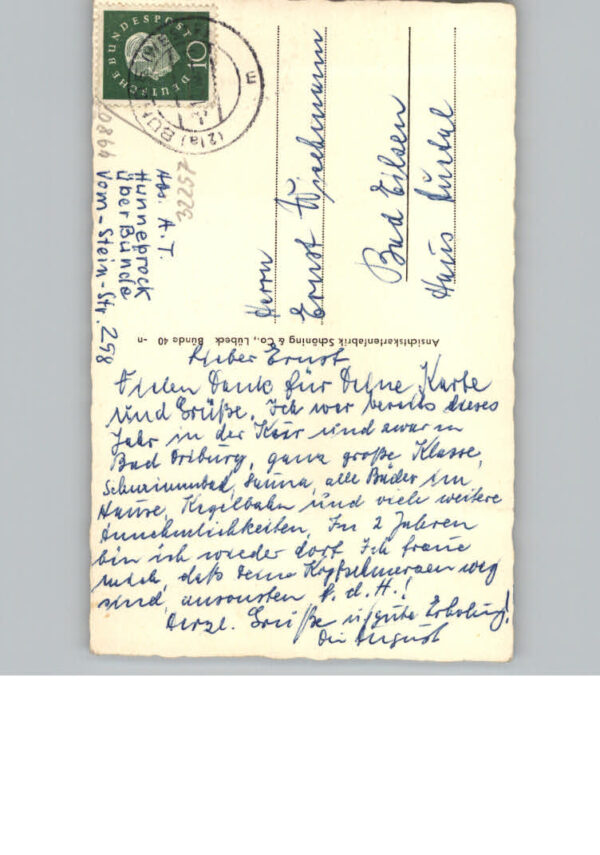 DEUTSCHE BUNDESPOST
10
(21a) BÜN
E
0864
32257
Abs. A. T.
Hunnebrock
über Bünde
Vom-Stein-Str. 258
Herrn
Ernst Wiehmann
Bad Eilsen
Haus
Ansichtskartenfabrik Schöning & Co., Lübeck Bünde 40 -n
Lieber Ernst
Vielen Dank für Deine Karte
und Grüße. Ich war bereits dieses
Jahr in der Kur und zwar in
Bad Driburg, ganz große Klasse,
Schwimmbad, Sauna, alle Bäder im
Hause, Kegelbahn und viele weitere
Annehmlichkeiten. In 2 Jahren
bin ich wieder dort. Ich freue
mich, daß Deine Kopfschmerzen weg
sind, ansonsten K. d. H.!
Herzl. Grüße u. gute Erholung!
Dein August